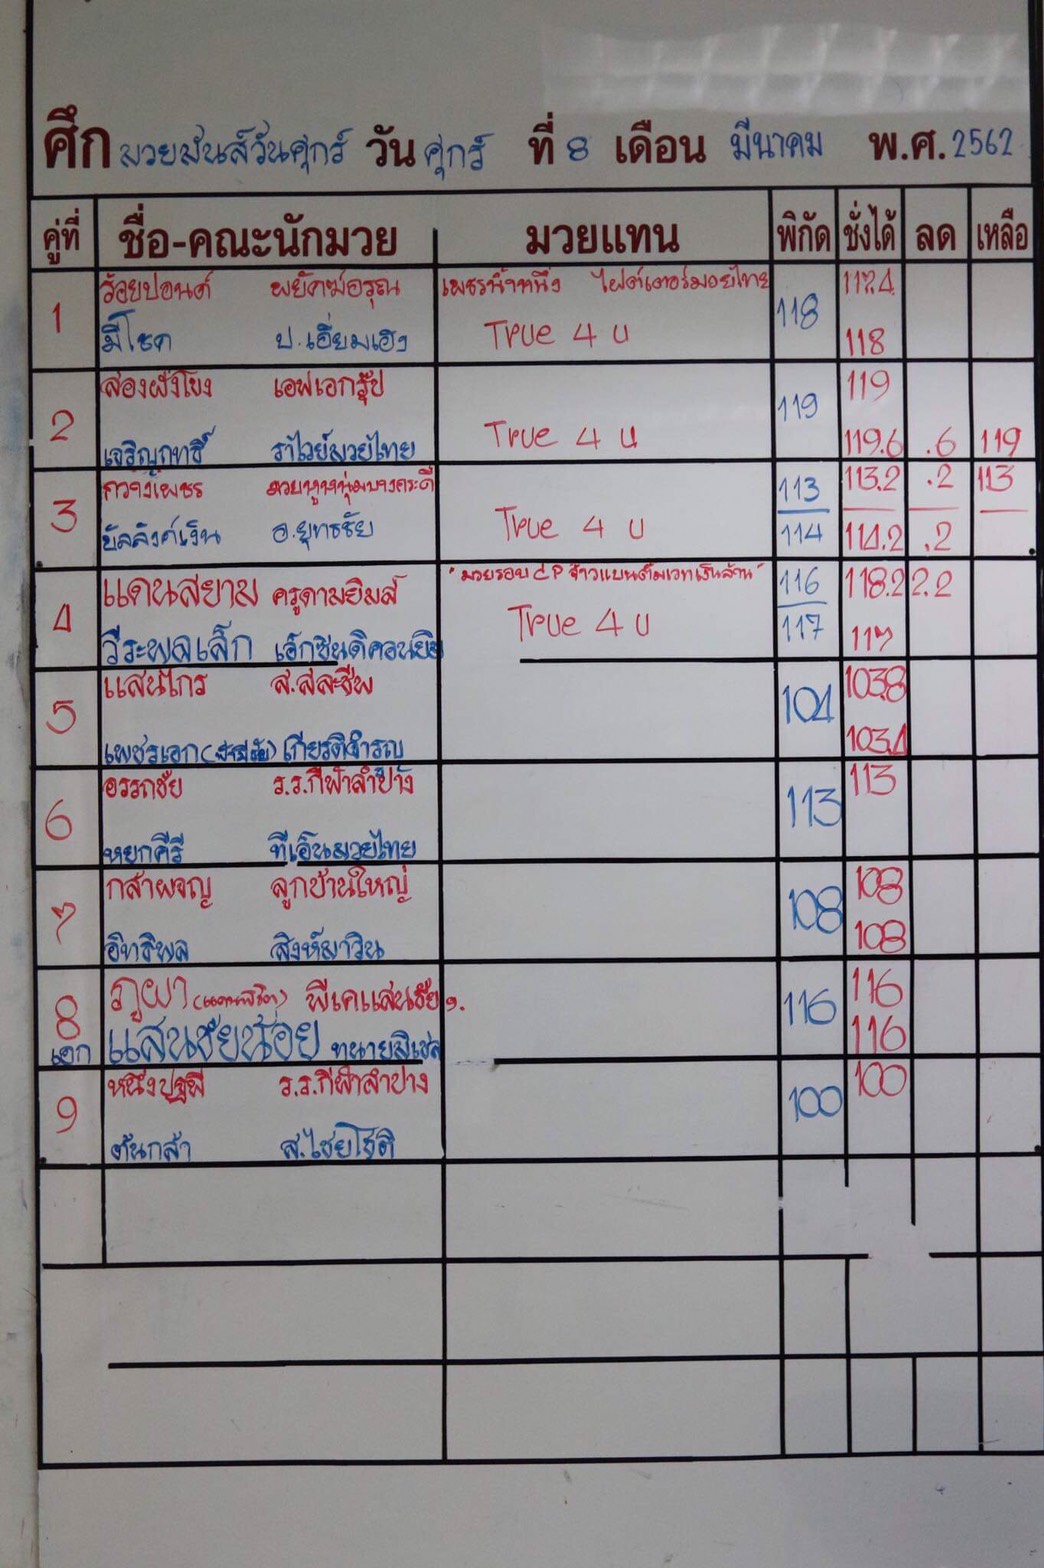 ศึก มวยมันส์วันศุกร์ วัน ศุกร์ ที่ 8 เดือน มีนาคม พ.ศ. 2562
คู่ที่ ชื่อ-คณะนักมวย มวยแทน พิกัด ชั่งได้ ลด เหลือ
1 ร้อยปอนด์ พยัคฆ์อรุณ เพชรน้ำหนึ่ง ไฟต์เตอร์มวยไทย 118 117.4
มีโชค ป.เอี่ยมเฮง True 4 U 118
2 สองฝั่งโขง เอฟเอกรุ๊ป 119 119
เจริญฤทธิ์ ราไวย์มวยไทย True 4 U 119.6 .6 119
3 กวางเพชร มวยหูหทุ่มบางกะดี 113 113.2 .2 113
บัลลังค์เงิน อ.ยุทธชัย True 4 U 114 114.2 .2
4 แดนสยาม ครูดามยิมส์ "มวยรอบ CP จ้าวแบนตั้มเวทเงินล้าน" 116 118.2 2.2
วีระพลเล็ก True 4 U 117 117
5 แสนไกร ส.สละชีพ 104 103.8
เพชรเอก เกียรติจำรูญ 103.4
6 อรรถชัย ร.ร.กีฬาลำปาง 113 113
หยกคีรี ทีเอ็นมวยไทย
7 กล้าผจญ ลูกบ้านใหญ่ 108 108
อิทธิพล สิงห์มาวิน 108
8 ภูผา พีเคแสนชัยฯ. 116 116
เอก แสนชัยน้อย 116
9 หนึ่งปฐพี ร.ร.กีฬาลำปาง 100 100
ต้นกล้า ส.ไชยโชติ